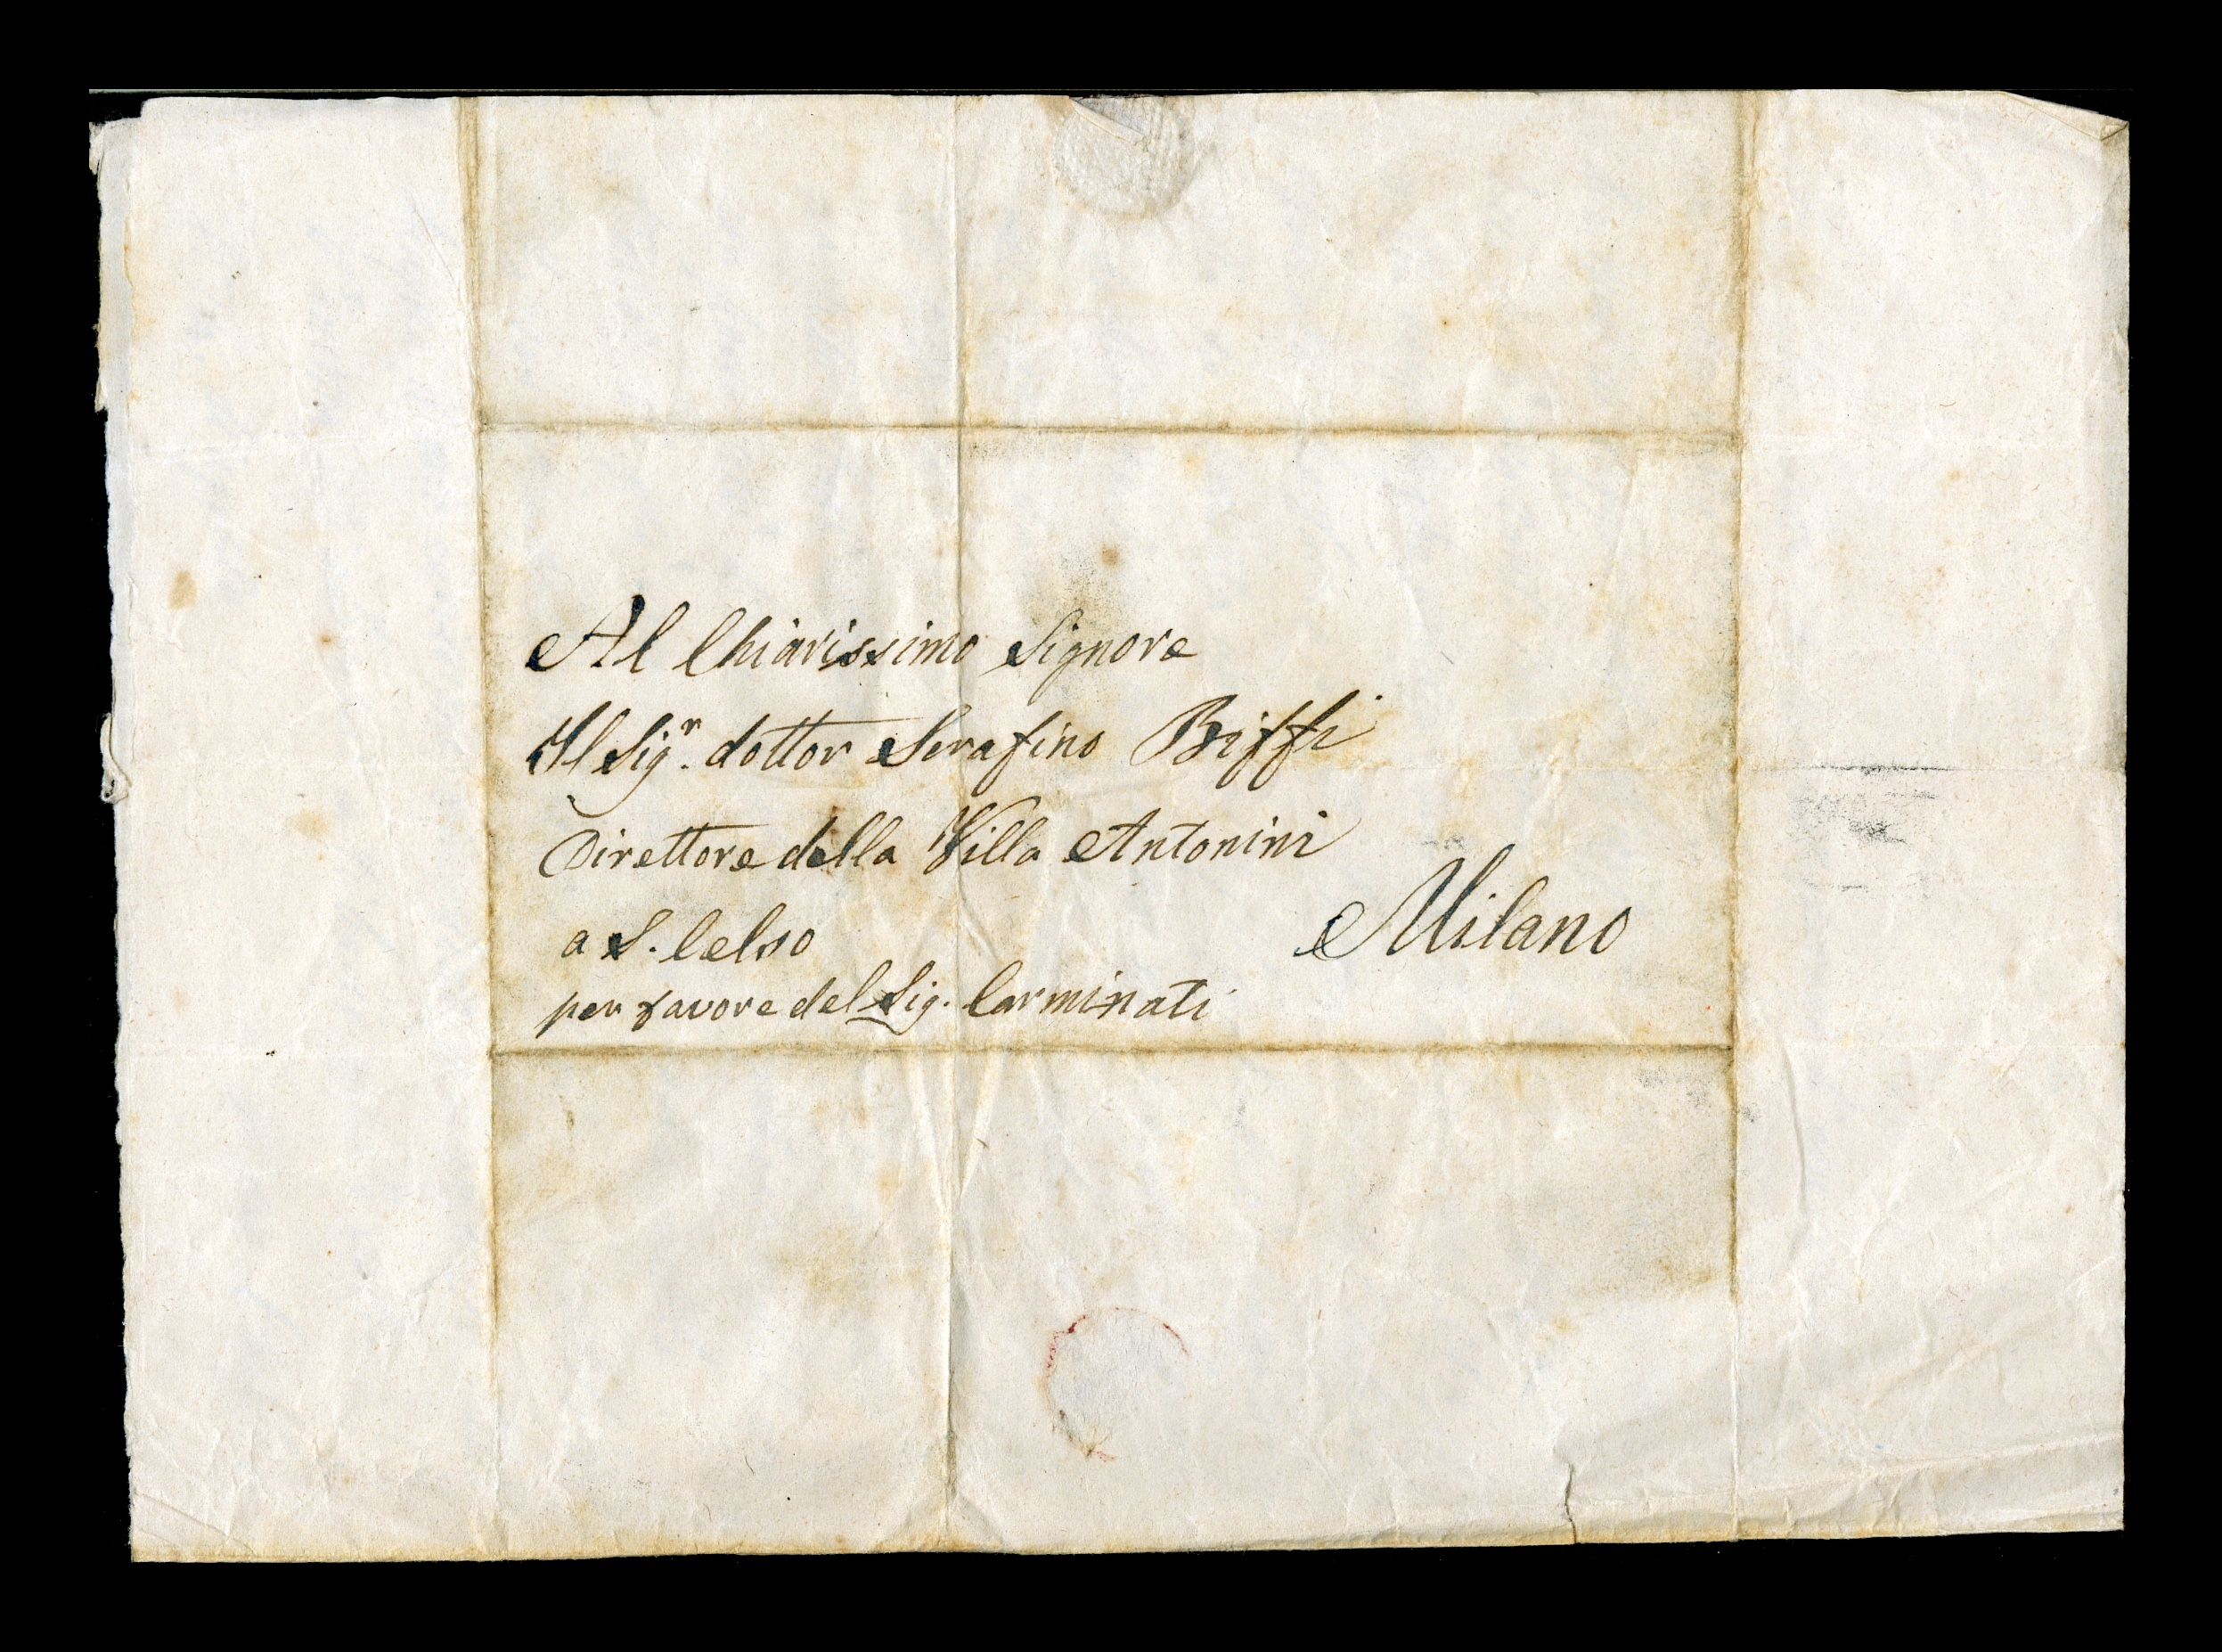 Al Chiarissimo Signore
Il Sigr. dottor Serafino Biffi
Direttore della Villa Antonini
a S. Celso
Milano
per favore del Sig. Carminati